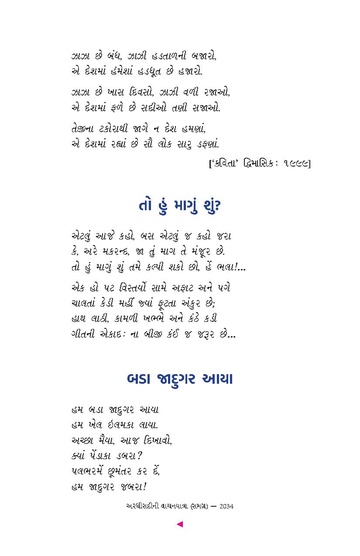 ઝાઝા છે બંધ, ઝાઝી હડતાળની બજારો,
એ દેશમાં હંમેશાં હડધૂત છે હજારો.
ઝાઝા છે ખાસ દિવસો, ઝાઝી વળી રજાઓ,
એ દેશમાં ફળે છે સદીઓ તણી સજાઓ.
તેજીના ટકોરાથી જાગે ન દેશ હમણાં,
એ દેશમાં રહ્યાં છે સૌ લોક સારુ ડફણાં.
['કવિતા' દ્વિમાસિક : ૧૯૯૯]
તો હું માગું શું?
એટલું આજે કહો, બસ એટલું જ કહો જરા
કે, અરે મકરન્દ, જા તું માગ તે મંજૂર છે.
તો હું માગું શું તમે કલ્પી શકો છો, હેં ભલા!...
એક હો પટ વિસ્તર્યો સામે અફાટ અને પગે
ચાલતાં કેડી મહીં જ્યાં ફૂટતા અંકુર છે;
હાથ લાઠી, કામળી ખભ્ભે અને કંઠે કડી
ગીતની એકાદ : ના બીજી કંઈ જ જરૂર છે...
બડા જાદુગર આયા
હમ બડા જાદુગર આયા
હમ ખેલ ઇલમકા લાયા.
અચ્છા મૈયા, આજ દિખાવો,
ક્યાં પેંડાકા ડબરા?
પલભરમેં છૂમંતર કર દેં,
હમ જાદુગર જબરા!
અરધીસદીની વાચનયાત્રા (સમગ્ર) — 2034